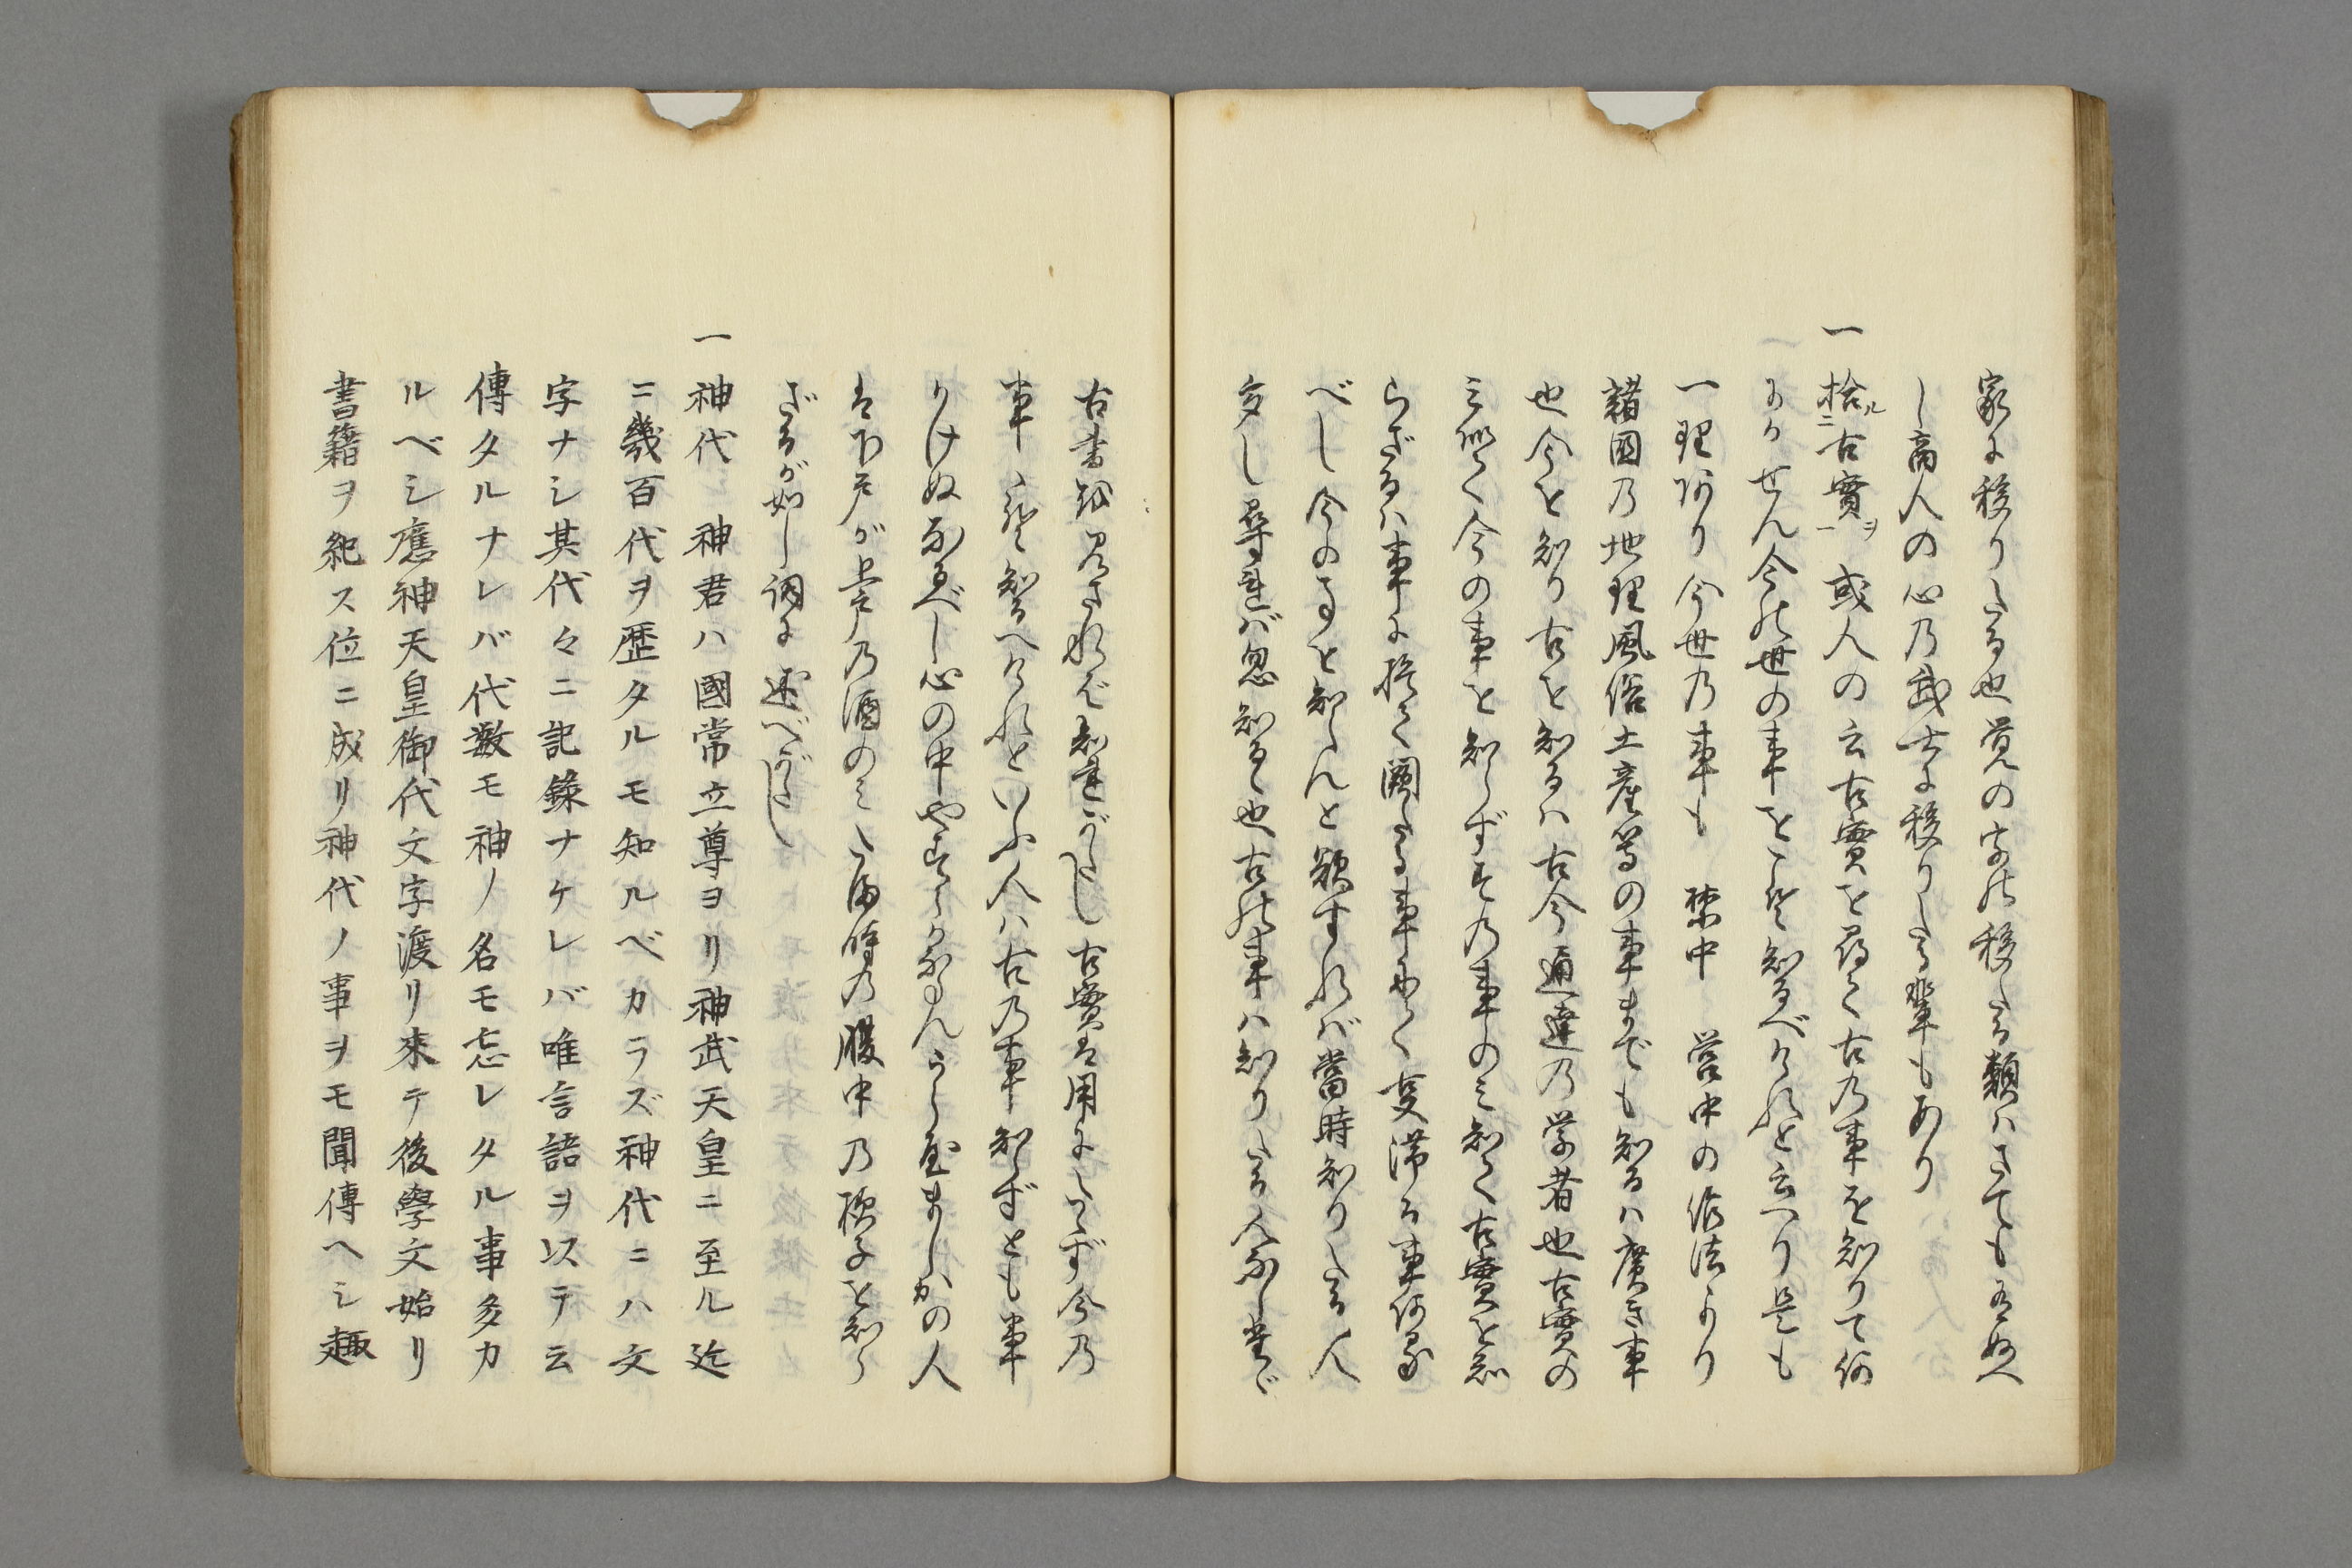 家に移りたる也覚の字の移したる類ハさても有ぬべ
し商人の心乃武士に移りしたる輩もあり
一 捨ル二古實一ヲ 或人の云古實を尋て古乃事を知りて何
にかせん今の世の事をこそ知るべけれと云へり是も
一理あり今世乃事も 禁中 営中の作法より
諸国乃地理風俗土産等の事までも知るハ廣き事
也今を知り古を知るハ古今通達乃学者也古實の
ミ誇て今の事を知らず今乃事のミ知て古實を知
らざるハ事に於て闕たる事ありて支滞る事ある
べし今の事を知らんと欲すれば當時知りたる人
多し尋れば忽知るゝ也古の事ハ知りたる人なし
古書を見されば知れがたし古實は用に立ず今乃
事こそ知るべけれといふ人ハ古乃事知らずとも事
かけぬなるべし心の中やすらかならんうらやましかの人
は下戸が上戸乃酒のミたる時乃腹中乃様子を知ら
ざるが如し詞に述べがたし
一 神代ノ神君ハ國常立尊ヨリ神武天皇ニ至ル迄
ニ幾百代ヲ歴タルモ知ルベカラズ神代ニハ文
字ナシ其代々ニ記錄ナケレバ唯言語ヲ以テ云
傳タルナレバ代數モ神ノ名モ忘レタル事多カ
ルベシ應神天皇御代文字渡リ來テ後學文始リ
書籍ヲ紀ス位ニ成リ神代ノ事ヲモ聞傳ヘシ趣